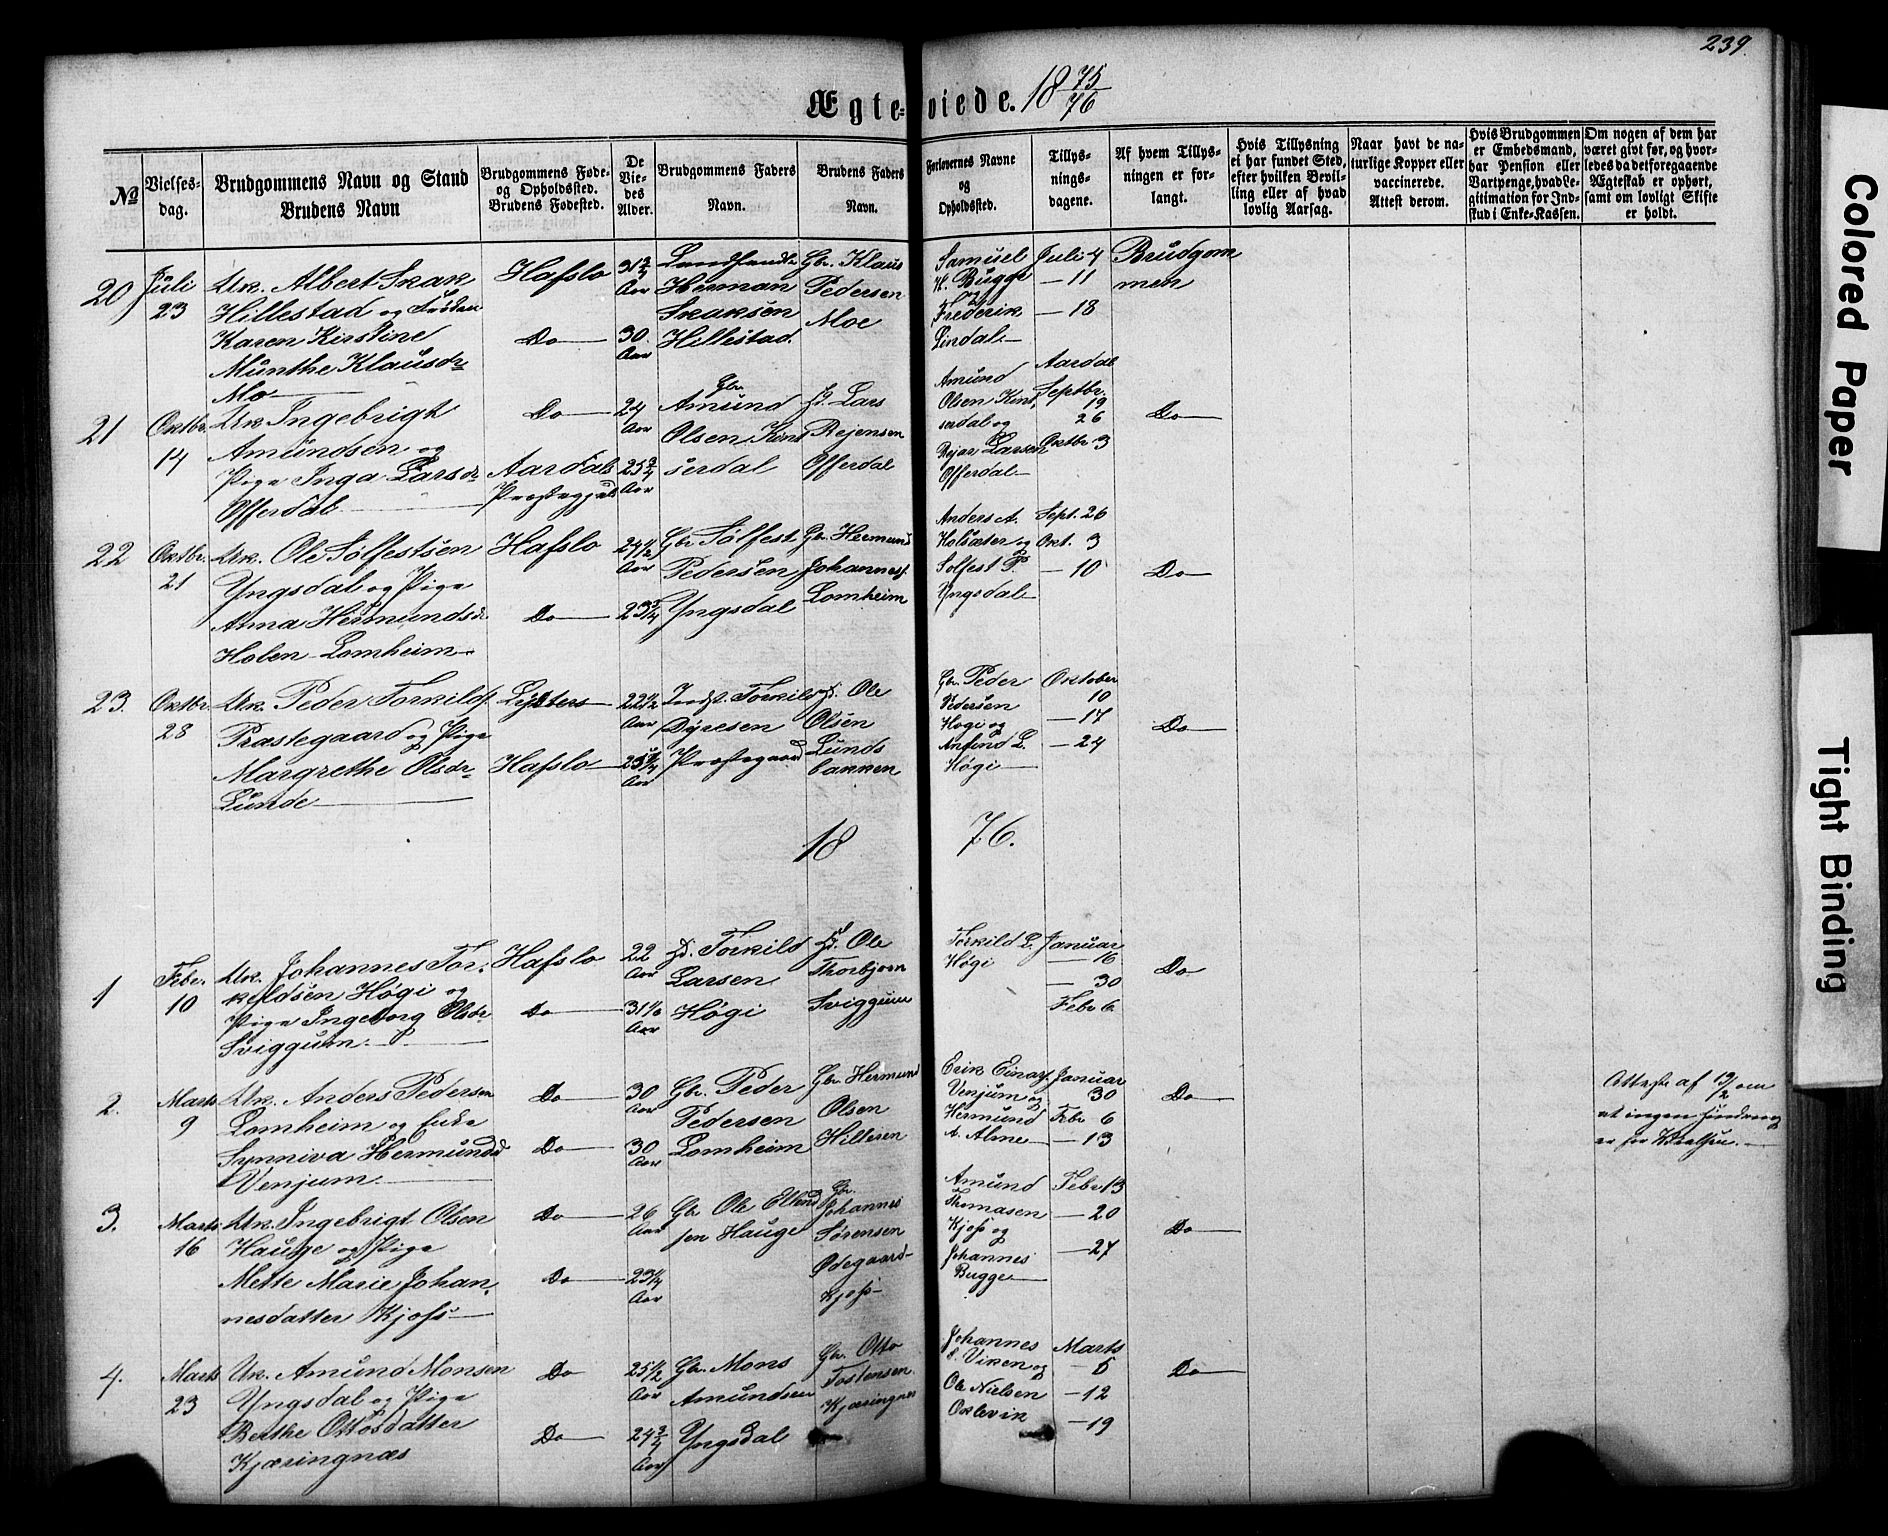 239.
Ægteviede. 18 75/76
No
Vielses-
dag.
Brudgommens Navn og Stand
Brudens Navn
Brudgommens Føde-
og Opholdssted.
Brudens Fødested.
De
Vie-
des
Alder.
Brudgommens Faders
Navn.
Brudens Faders
Navn.
Forlovernes Navne
og
Opholdssted.
Tillys-
nings-
dagene.
Af hvem Tillys-
ningen er for-
langt.
Hvis Tillysning
ei har fundet Sted,
efter hvilken Bevil-
ling eller af hvad
lovlig Aarsag.
Naar havt de na-
turlige Kopper eller
vaccinerede.
Attest derom.
Hvis Brudgommen
er Embedsmand,
har Pension eller
Vartpenge, hvad Le-
gitimation for Ind-
skud i Enke-Kassen.
Om nogen af dem har
været givt før, og hvor-
ledes da det foregaaende
Ægteskab er ophørt,
samt om lovligt Skifte
er holdt.
20
Juli
23
Uk. Albert Skak
Hillestad og Frøken
Karen Kirstine
Munthe Klausdr
Mo
Hafslo
Do
31 3/4
Aar
30
Aar
Herman
Skaksen
Hillestad.
Gbr. Klaus
Pedersen
Moe
Samuel
H. Bugge
og
Frederik
Lindal
Juli 4
— 11
— 18
Brudgom
men
21
Oktbr.
14
Uk. Ingebrigt
Amundsen og
Pige Inga Larsdr
Offerdal
Do
Aardals
Præstegjeld
24
Aar
25 3/4
Aar
Gbr.
Amund
Olsen Kins
serdal
Hd. Lars
Rejersen
Offerdal
Amund
Olsen Kins
serdal og
Rejar Larsen
Offerdal
Aardal
Septbr.
19
26
Oktbr 3
Do
22
Oktbr.
21
Uk. Ole Sølfestsen
Yngsdal og Pige
Anna Hermundsdr
Holen Lomheim
Hafslo
Do
24 1/2
Aar
23 3/4
Gbr Sølfest
Pedersen
Yngsdal
Gbr. Hermund
Johannes
Lomheim
Anders A.
Holsæter og
Solfest P.
Yngsdal
Sept. 26
Okt. 3
— 10
Do
23.
Oktbr.
28
Uk. Peder Torkilds.
Præstegaard og Pige
Margrethe Olsdr
Lunde
Lysters
Hafslo
22 1/2
Aar
25 3/4
Aar
Indst. Torkild
Dyresen
Præstegaard
Hd. Ole
Olsen
Lunds
bakken
Gbr. Peder
Pedersen
Høgi og
Anfind L.
Høgi
Oktober
10
— 17
— 24
Do
18 76.
1
Febr.
10
Uk. Johannes Tor-
kildsen Høgi og
Pige Ingeborg Olsdr
Sviggum
Hafslo
Do
22
Aar
31
Aar
Hd. Torkild
Larsen
Høgi
Hd. Ole
Thorbjørn
Sviggum
Torkild L.
Høgi
Januar
— 16
— 30
Febr 6
Do
2.
Marts
9
Uk. Anders Pedersen
Lomheim og Enke
Synniva Hermundsd
Venjum
Do
Do
30
Aar
30
Aar
Gbr. Peder
Pedersen
Lomheim
Gbr. Hermund
Olsen
Hilleren
Erik Einars.
Venjum og
Hermund
A. Alme
Januar
30
Febr 6
— 13
Do
Attest af 19/2 om
at ingen Hindring
er for Vielsen.
3.
Marts
16
Uk. Ingebrigt Olsen
Hauge og Pige
Mette Marie Johan-
nesdatter Kjøfs
Do
Do
26
Aar
23 1/4
Aar
Gbr. Ole Ellend
sen Hauge
Gbr.
Johannes
Sørensen
Ødegaard-
Kjøfs
Amund
Thomasen
Kjøfs og
Johannes
Bugge
Febr 13
— 20
— 27
Do
4.
Marts
23
Uk. Amund Monsen
Yngsdal og Pige
Berthe Ottosdatter
Kjæringnæs
Do
Do
25 1/2
Aar
24 3/4
Aar
Gbr. Mons
Amundsen
Yngsdal
Gbr. Otto
Tostensen
Kjæringnes
Johannes
Viken og
Ole Nielsen
Oklevik
Marts
— 5
— 12
— 19
Do
Colored Paper
Tight Binding